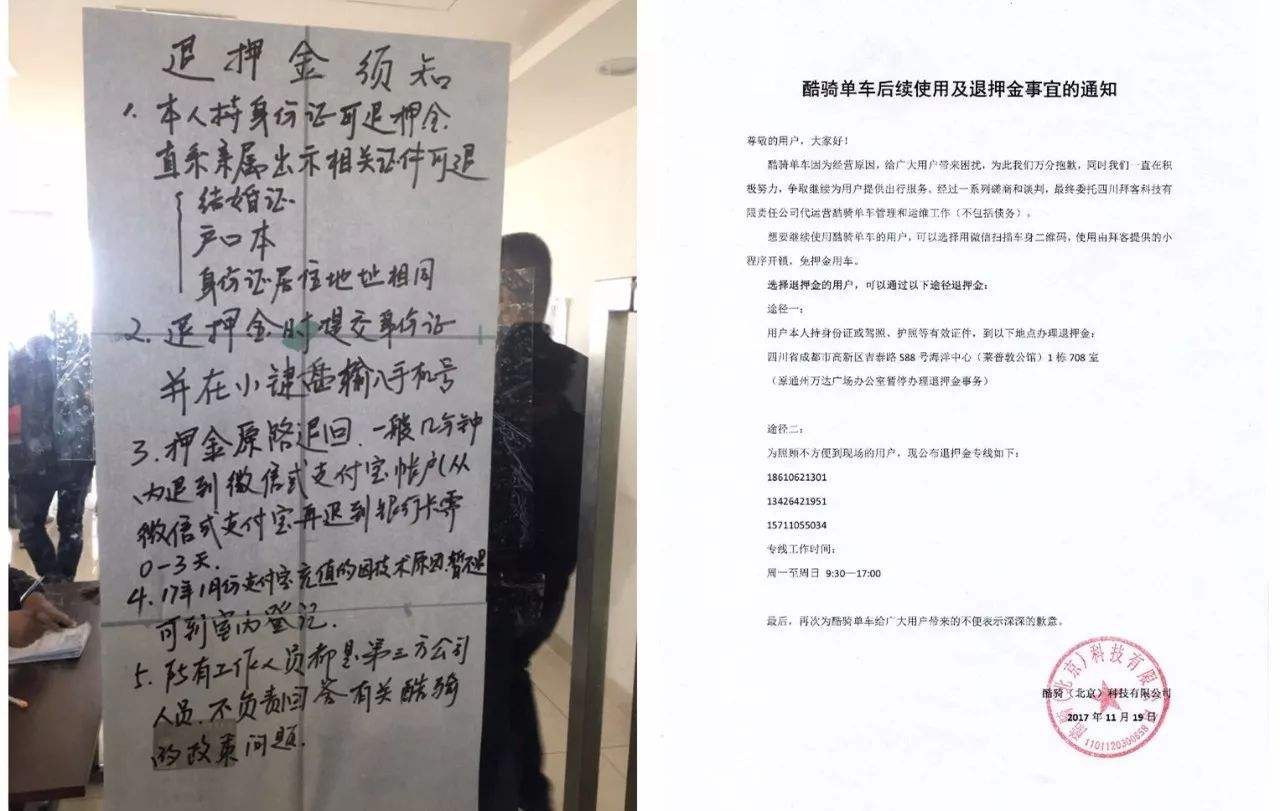 退押金须知
1、本人持身份证可退押金
直系亲属出示相关证件可退
结婚证
户口本
身份证居住地址相同
2、退押金时提交身份证
并在小键盘输入手机号
3、押金原路退回,一般几分钟
内退到微信或支付宝帐户(从
微信或支付宝再退到银行卡需
0-3天.
4、17年1月份支付宝充值的因技术原因,暂不退
可到室内登记.
5、所有工作人员都是第三方公司
人员,不负责回答有关酷骑
的政策问题.
酷骑单车后续使用及退押金事宜的通知
尊敬的用户,大家好!
酷骑单车因为经营原因,给广大用户带来困扰,为此我们万分抱歉,同时我们一直在积
极努力,争取继续为用户提供出行服务。经过一系列磋商和谈判,最终委托四川拜客科技有
限责任公司代运营酷骑单车管理和运维工作(不包括债务)。
想要继续使用酷骑单车的用户,可以选择用微信扫描车身二维码,使用由拜客提供的小
程序开锁,免押金用车。
选择退押金的用户,可以通过以下途径退押金:
途径一:
用户本人持身份证或驾照、护照等有效证件,到以下地点办理退押金:
四川省成都市高新区吉泰路 588 号海洋中心(莱普敦公馆)1 栋 708 室
(原通州万达广场办公室暂停办理退押金事务)
途径二:
为照顾不方便到现场的用户,现公布退押金专线如下:
18610621301
13426421951
15711055034
专线工作时间:
周一至周日 9:30—17:00
最后,再次为酷骑单车给广大用户带来的不便表示深深的歉意。
酷骑(北京)科技有限公司
2017 年 11 月 19 日
酷骑(北京)科技有限公司
1101120300658